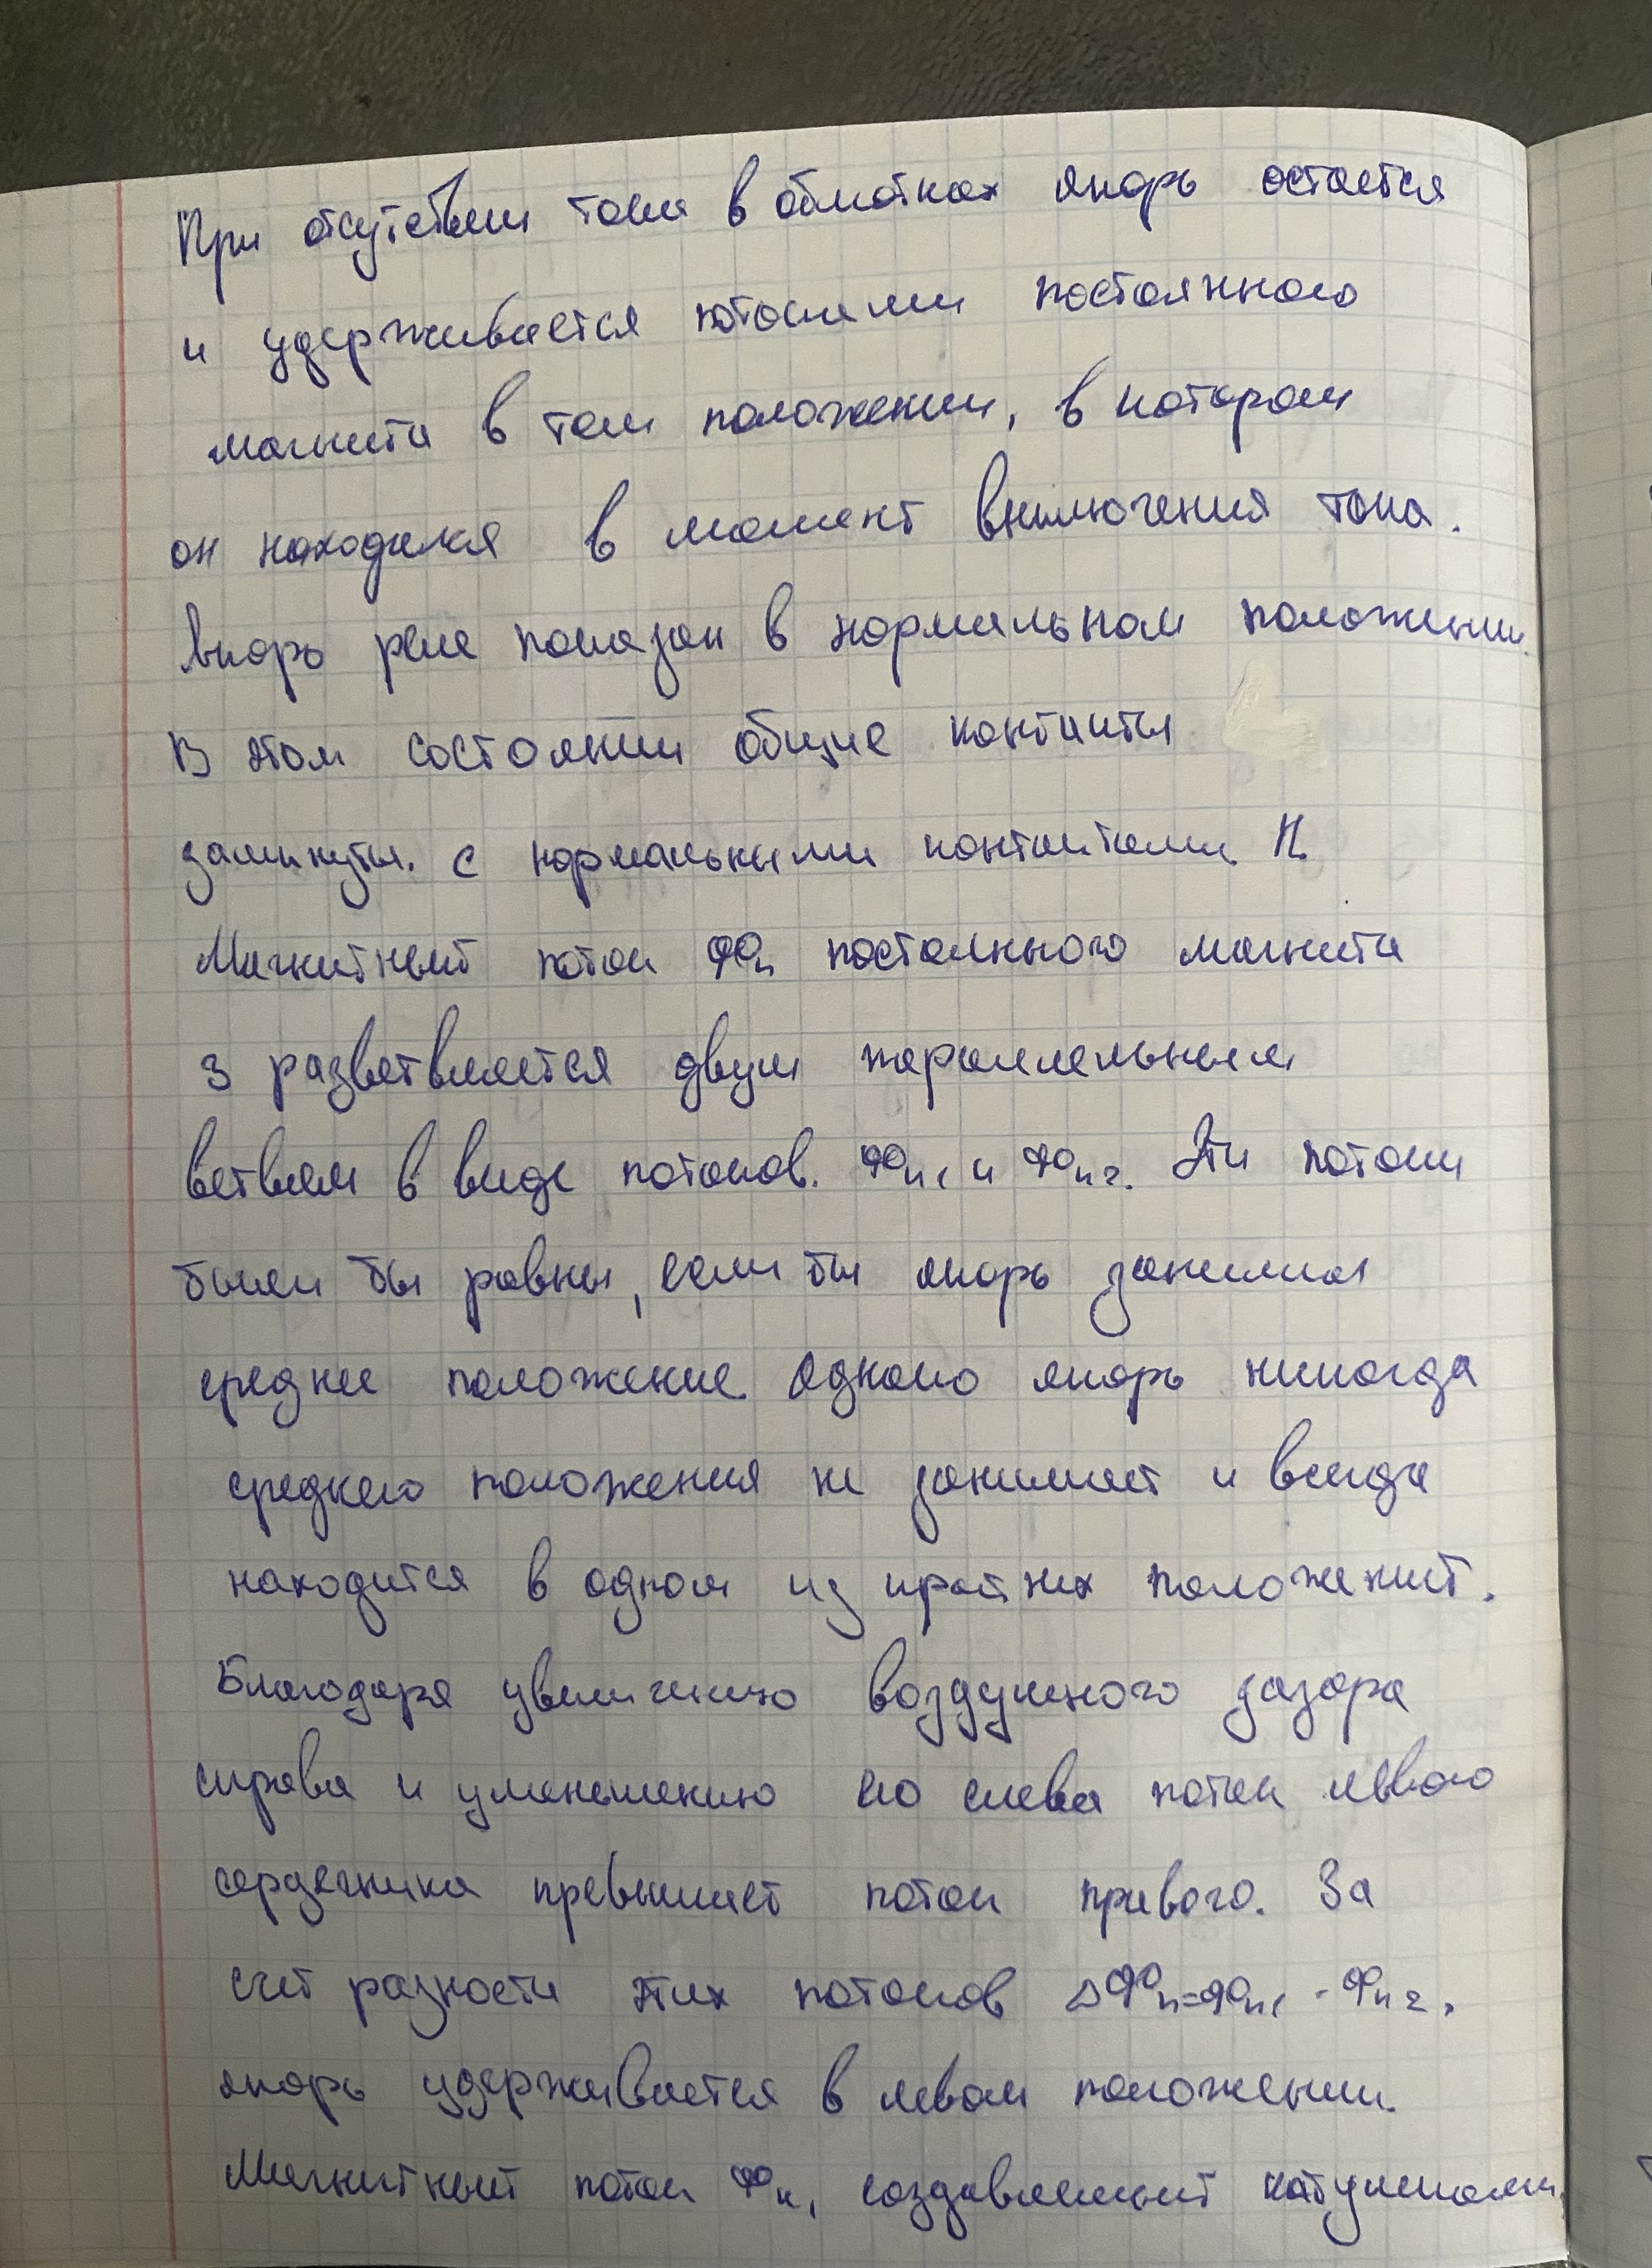 При отсутствии тока в обмотках якорь остается
и удерживается потоками постоянного
магнита в том положении, в котором
он находился в момент выключения тока.
Якорь реле показан в нормальном положении.
В этом состоянии общие контакты
замкнуты. с нормальными контактами Н.
Магнитный поток Фп постоянного магнита
3 разветвляется двум параллельным
ветвям в виде потоков. Фп1 и Фп2. Эти потоки
были бы равны, если бы якорь занимал
среднее положение. Однако якорь никогда
среднего положения не занимает и всегда
находится в одном из крайних положений.
Благодаря увеличению воздушного зазора
справа и уменьшению его слева поток левого
сердечника превышает поток правого. За
счет разности этих потоков ΔФп=Фп1 - Фп2.
якорь удерживается в левом положении.
Магнитный поток Фк, создаваемый катушками,